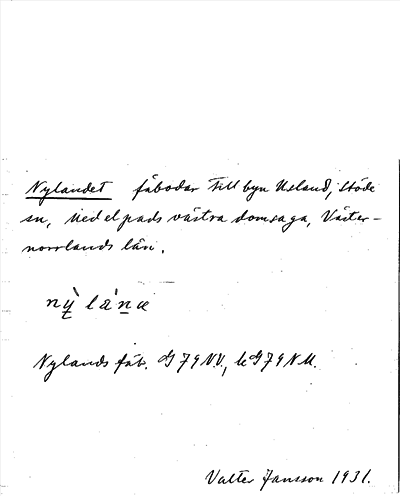 Nylandet fäbodar till byn Usland, Stöde
sn, Medelpads västra domsaga, Väster-
norrlands län.
Nylands fäb. G 74 N.V.,
Valter Jansson 1931.